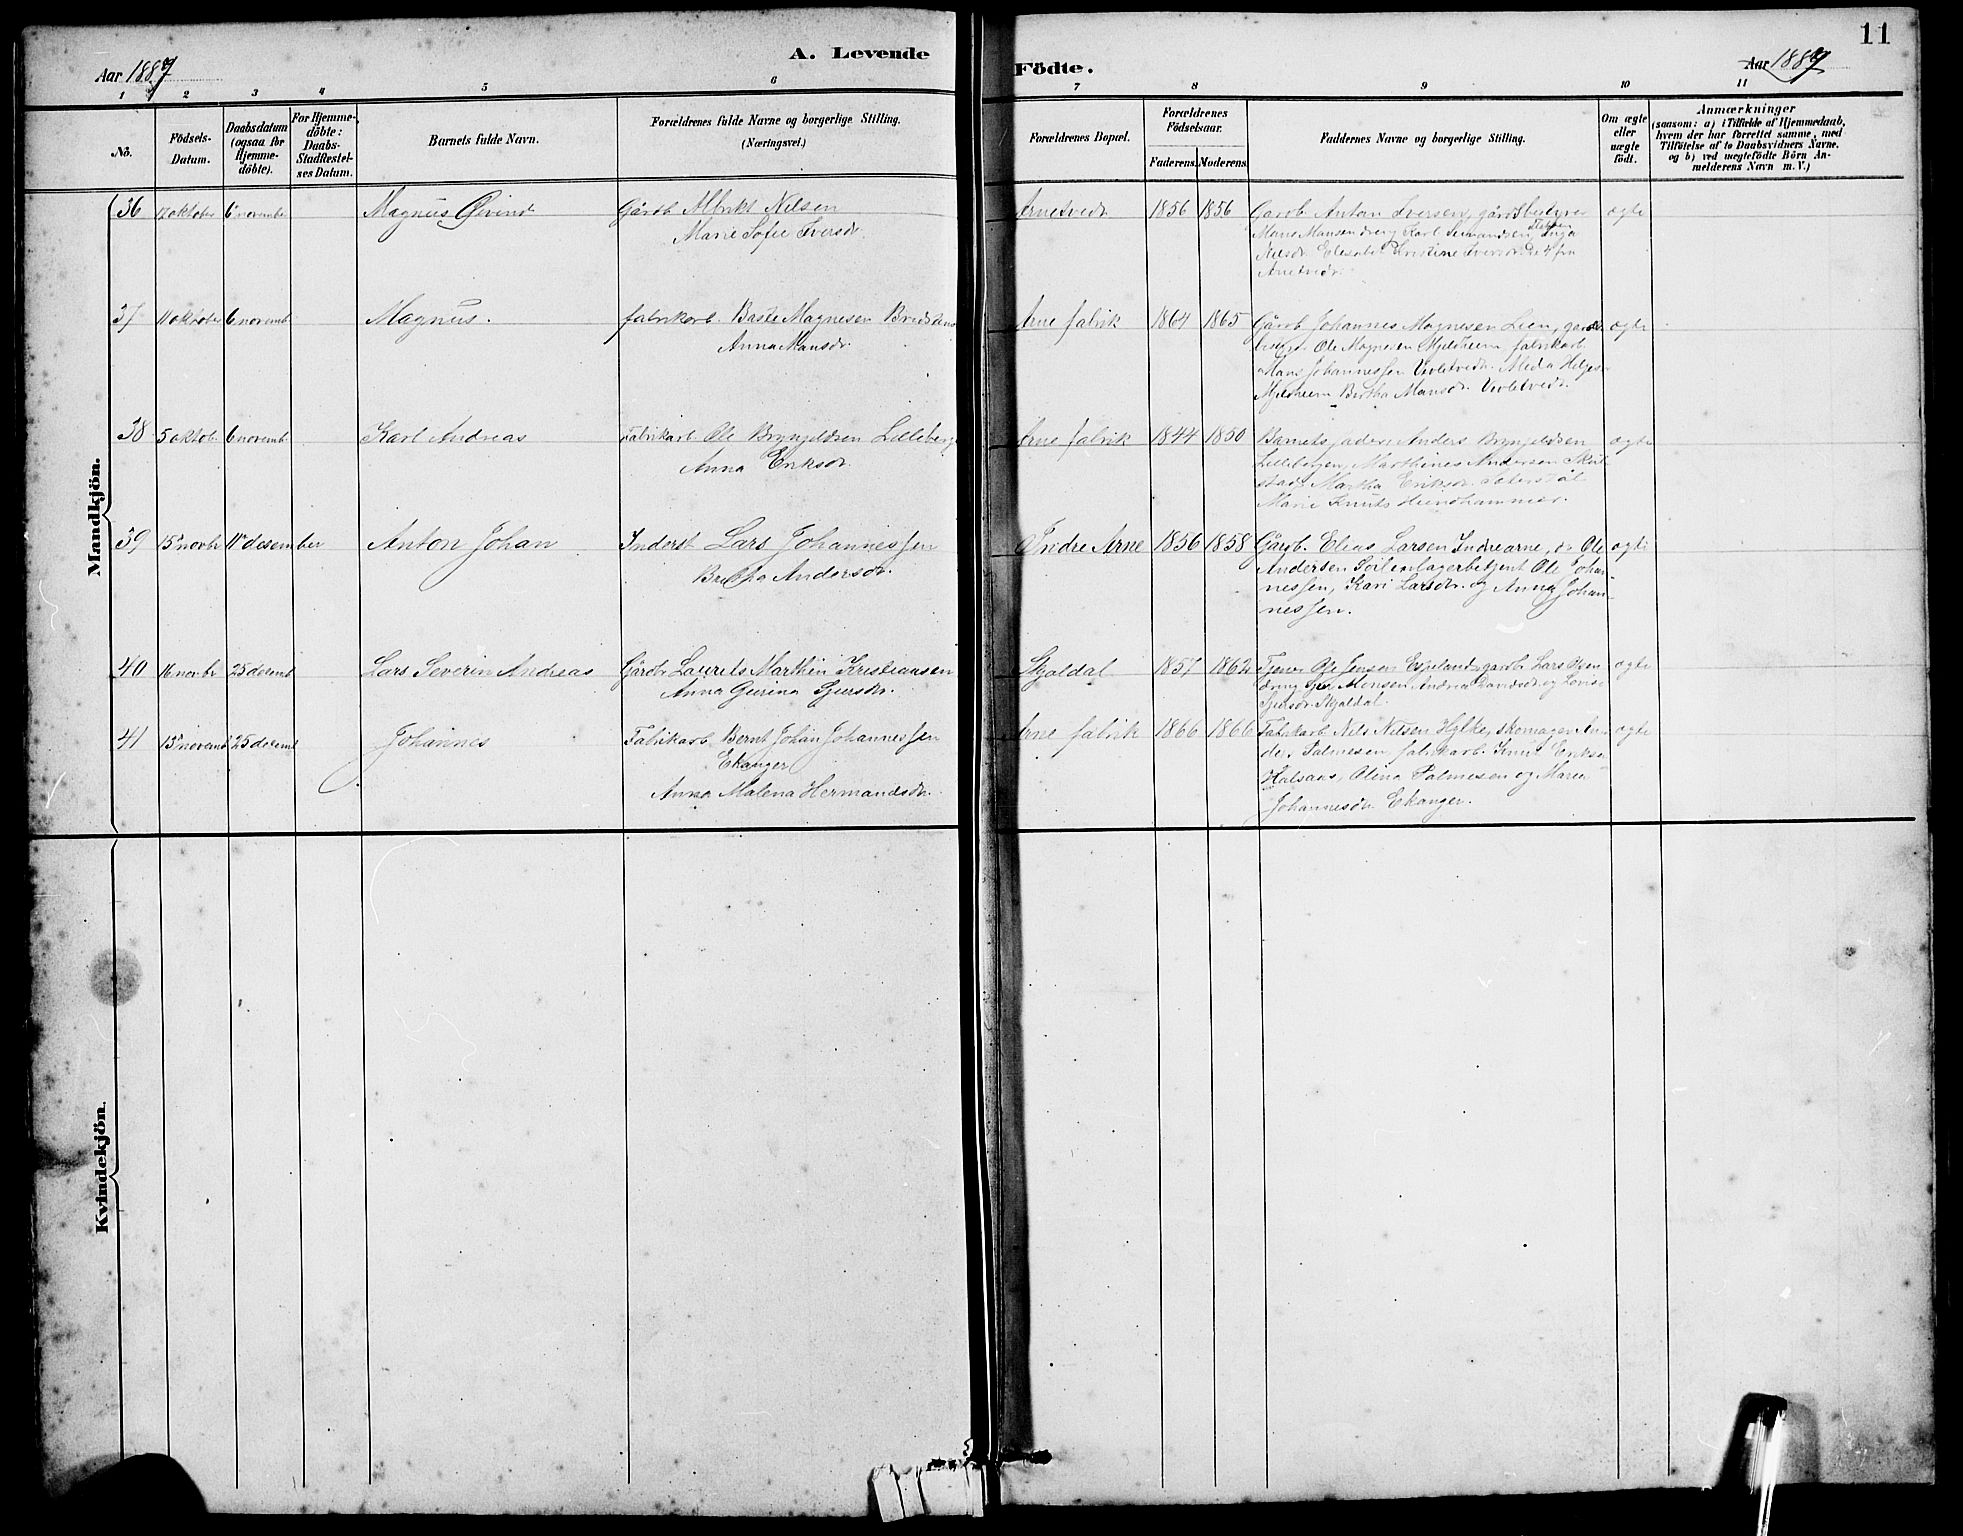 11
A. Levende Födte.
Aar 1887
Aar 1887
1 2 3 4 5 6 7 8 9 10 11
No.
Födsels-Datum.
Daabsdatum (ogsaa for Hjemme-döbte).
For Hjemme-döbte: Daabs-Stadfæstel-ses Datum.
Barnets fulde Navn.
Forældrenes fulde Navne og borgerlige Stilling.
(Næringsvei.)
Forældrenes Bopæl.
Forældrenes Födselsaar.
Faderens. Moderens.
Faddernes Navne og borgerlige Stilling.
Om ægte eller uægte födt.
Anmærkninger
(saasom: a) i Tilfælde af Hjemmedaab,
hvem der har forrettet samme, med
Tilföielse af to Daabsvidners Navne,
og b) ved uægtefödte Börn An-
melderens Navn m. V.)
Mandkjön.
36 17 oktober 6 novembr Magnus Øivind Gårdb Nilsen
Marie Sofie Iversdr.
Arnetvedt 1856 1856 Garob. Anton Iversen, gårdbestyrer
Karl
Nilsdr. Kristine Iversdr. fra
Arnetvedt
ægte
37 11 oktober 6 novemb Magnus. fabrikarb. Magnesen
Anna Mansdr.
Arne fabrik 1864 1865 Gårb. Johannes Magnesen Lien, gard
Ole Magnesen Mjeldheim fabrikarb
Hans Johannessen
Mjeldheim Bertha Mansdr.
ægte
38 5 oktob. 6 novemb Karl Andreas Fabrikarb. Ole Brynjeldsen Lilleberge
Anna Eriksdr.
Arne fabrik 1844 1850 Barnets fader, Anders Brynjeldsen
Lillebergen, Marthines Andersen
Martha Eriksdr.
Marie Knuts
ægte
39 15 novbr 11 desember Anton Johan Inderst Lars Johannessen
Andersdr.
Indre Arne 1856 1858 Gårb. Elias Larsen Indrearne, do Ole
Andersen lagerbetjent Ole Johan-
nessen, Kari Larsdr. og Anna Johan-
nessen.
ægte
40 16 novbr 25 decemb Lars Severin Andreas Gårdb. Laurits Marthin Kristiansen
Anna Gurina
Skjaldal 1857 1862 Tjener Espeland, garob. Lars
Monsen Andrea Davidsdr. og Lovise
Skjaldal.
ægte
41 15 novemb 25 decemb Johannes Fabrikarb. Bernt Johan Johannessen
Ekanger
Anna Malena Hermandsdr.
Arne fabrik 1866 1866 Fabrikarb. Nils Nilsen Hylke, skomager An-
ders Palmesen, fabrikarb. Knut Eriksen
Halsaas, Olina Palmesen og Maria
Johannesdr. Ekanger.
ægte
Kvindekjön.